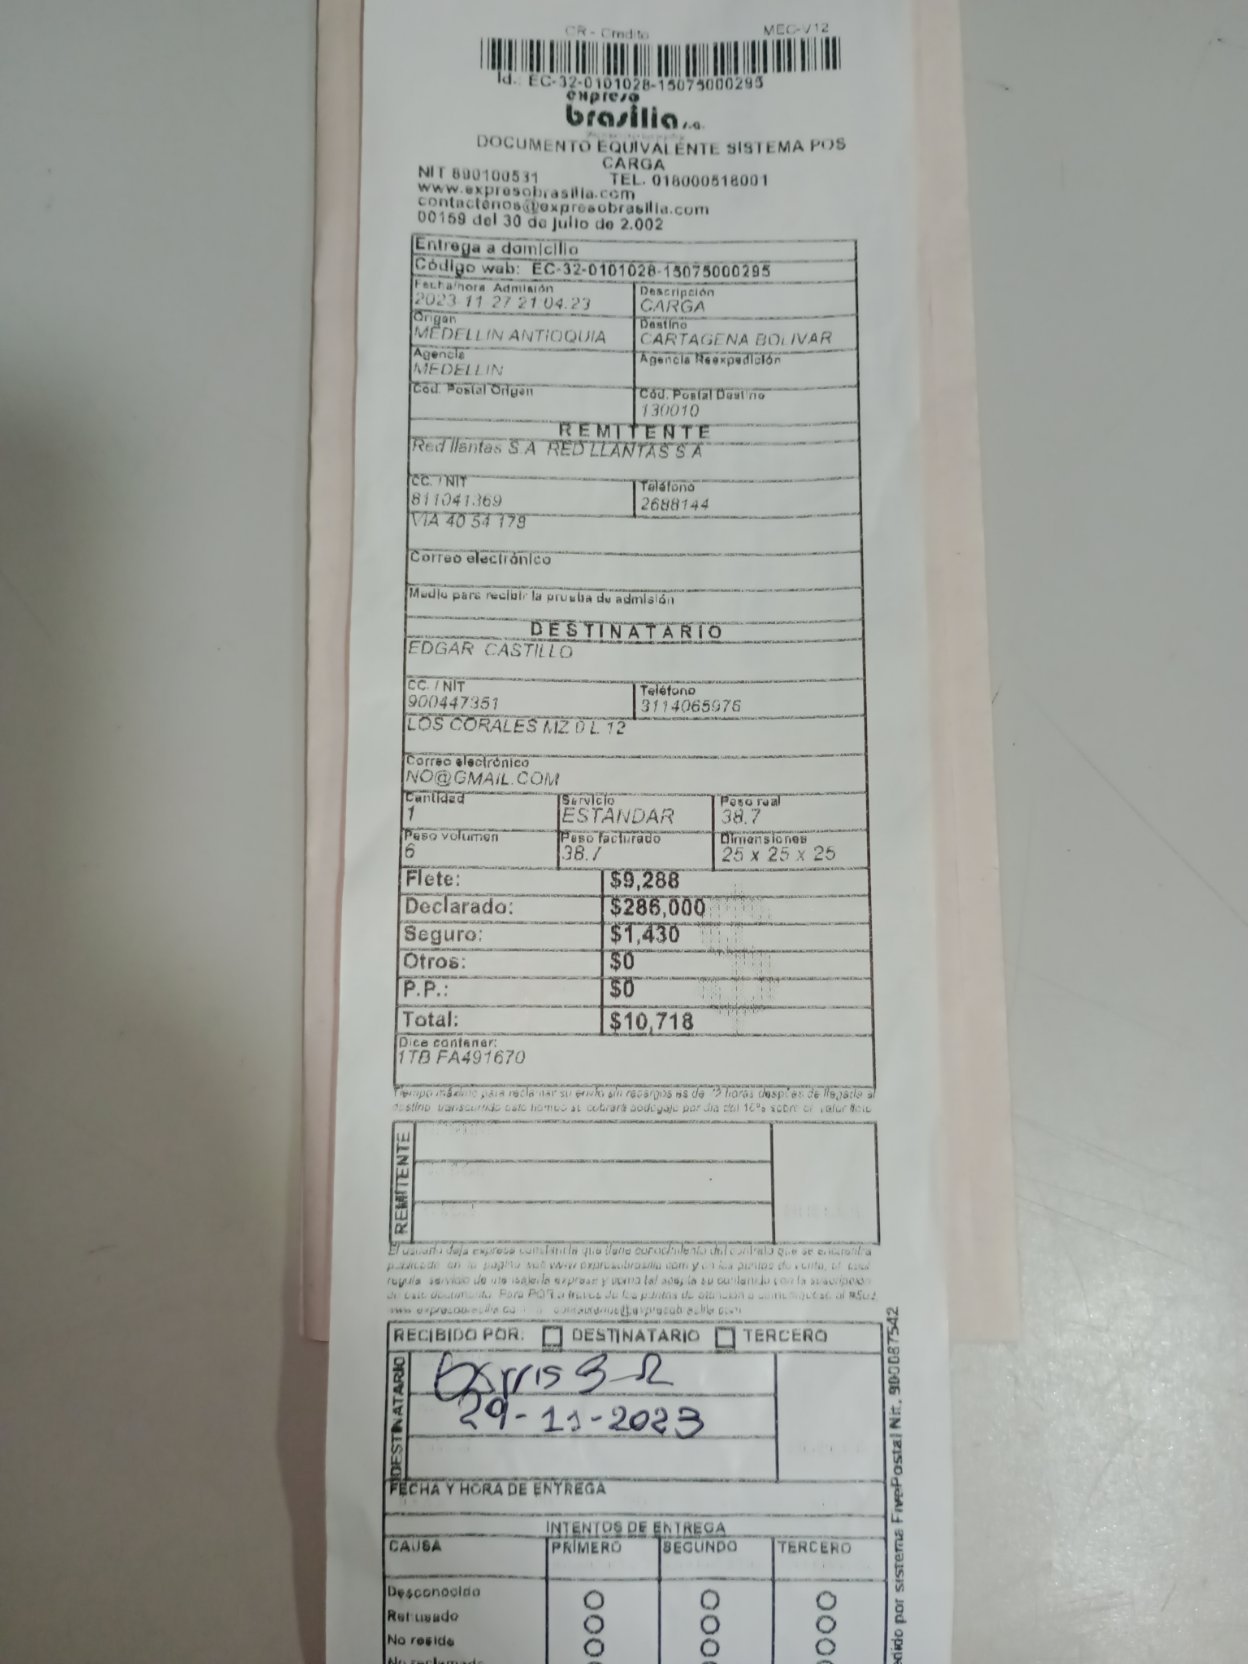 CR - Credito MEC-V12
Id.: EC-32-0101028-15075000295
expreso
brasilia s.a.
DOCUMENTO EQUIVALENTE SISTEMA POS
CARGA
NIT 890100531 TEL. 018000518001
www.expresobrasilia.com
contactenos@expresobrasilia.com
00159 del 30 de julio de 2.002
Entrega a domicilio
Código web: EC-32-0101028-15075000295
Fecha/hora Admisión Descripción
2023-11-27 21:04:23 CARGA
Origen Destino
MEDELLIN ANTIOQUIA CARTAGENA BOLIVAR
Agencia Agencia Reexpedición
MEDELLIN
Cód. Postal Origen Cód. Postal Destino
130010
REMITENTE
Red llantas S.A RED LLANTAS S A
CC. / NIT Teléfono
811041369 2688144
VIA 40 54 179
Correo electrónico
Medio para recibir la prueba de admisión
DESTINATARIO
EDGAR CASTILLO
CC. / NIT Teléfono
900447351 3114065976
LOS CORALES MZ D L 12
Correo electrónico
NO@GMAIL.COM
Cantidad Servicio Peso real
1 ESTANDAR 38.7
Peso volumen Peso facturado Dimensiones
6 38.7 25 x 25 x 25
Flete: $9,288
Declarado: $286,000
Seguro: $1,430
Otros: $0
P.P.: $0
Total: $10,718
Dice contener:
1TB FA491670
Tiempo máximo para reclamar su envío sin recargos es de 72 horas después de llegada al
destino, transcurrido este tiempo se cobrará bodegaje por día del 16% sobre el valor flete
REMITENTE
El usuario deja expresa constancia que tiene conocimiento del contrato que se encuentra
publicado en la pagina web www.expresobrasilia.com y en los puntos de venta, el cual
regula servicio de mensajería expresa y como tal acepta su contenido con la suscripción
de este documento. Para PQR a través de los puntos de atención o comuníquese al
www.expresobrasilia.com contactenos@expresobrasilia.com
RECIBIDO POR: DESTINATARIO TERCERO
DESTINATARIO
29-11-2023
FECHA Y HORA DE ENTREGA
INTENTOS DE ENTREGA
CAUSA PRIMERO SEGUNDO TERCERO
Desconocido
Rehusado
No reside
No reclamado
por sistema FivePostal Nit. 900087542